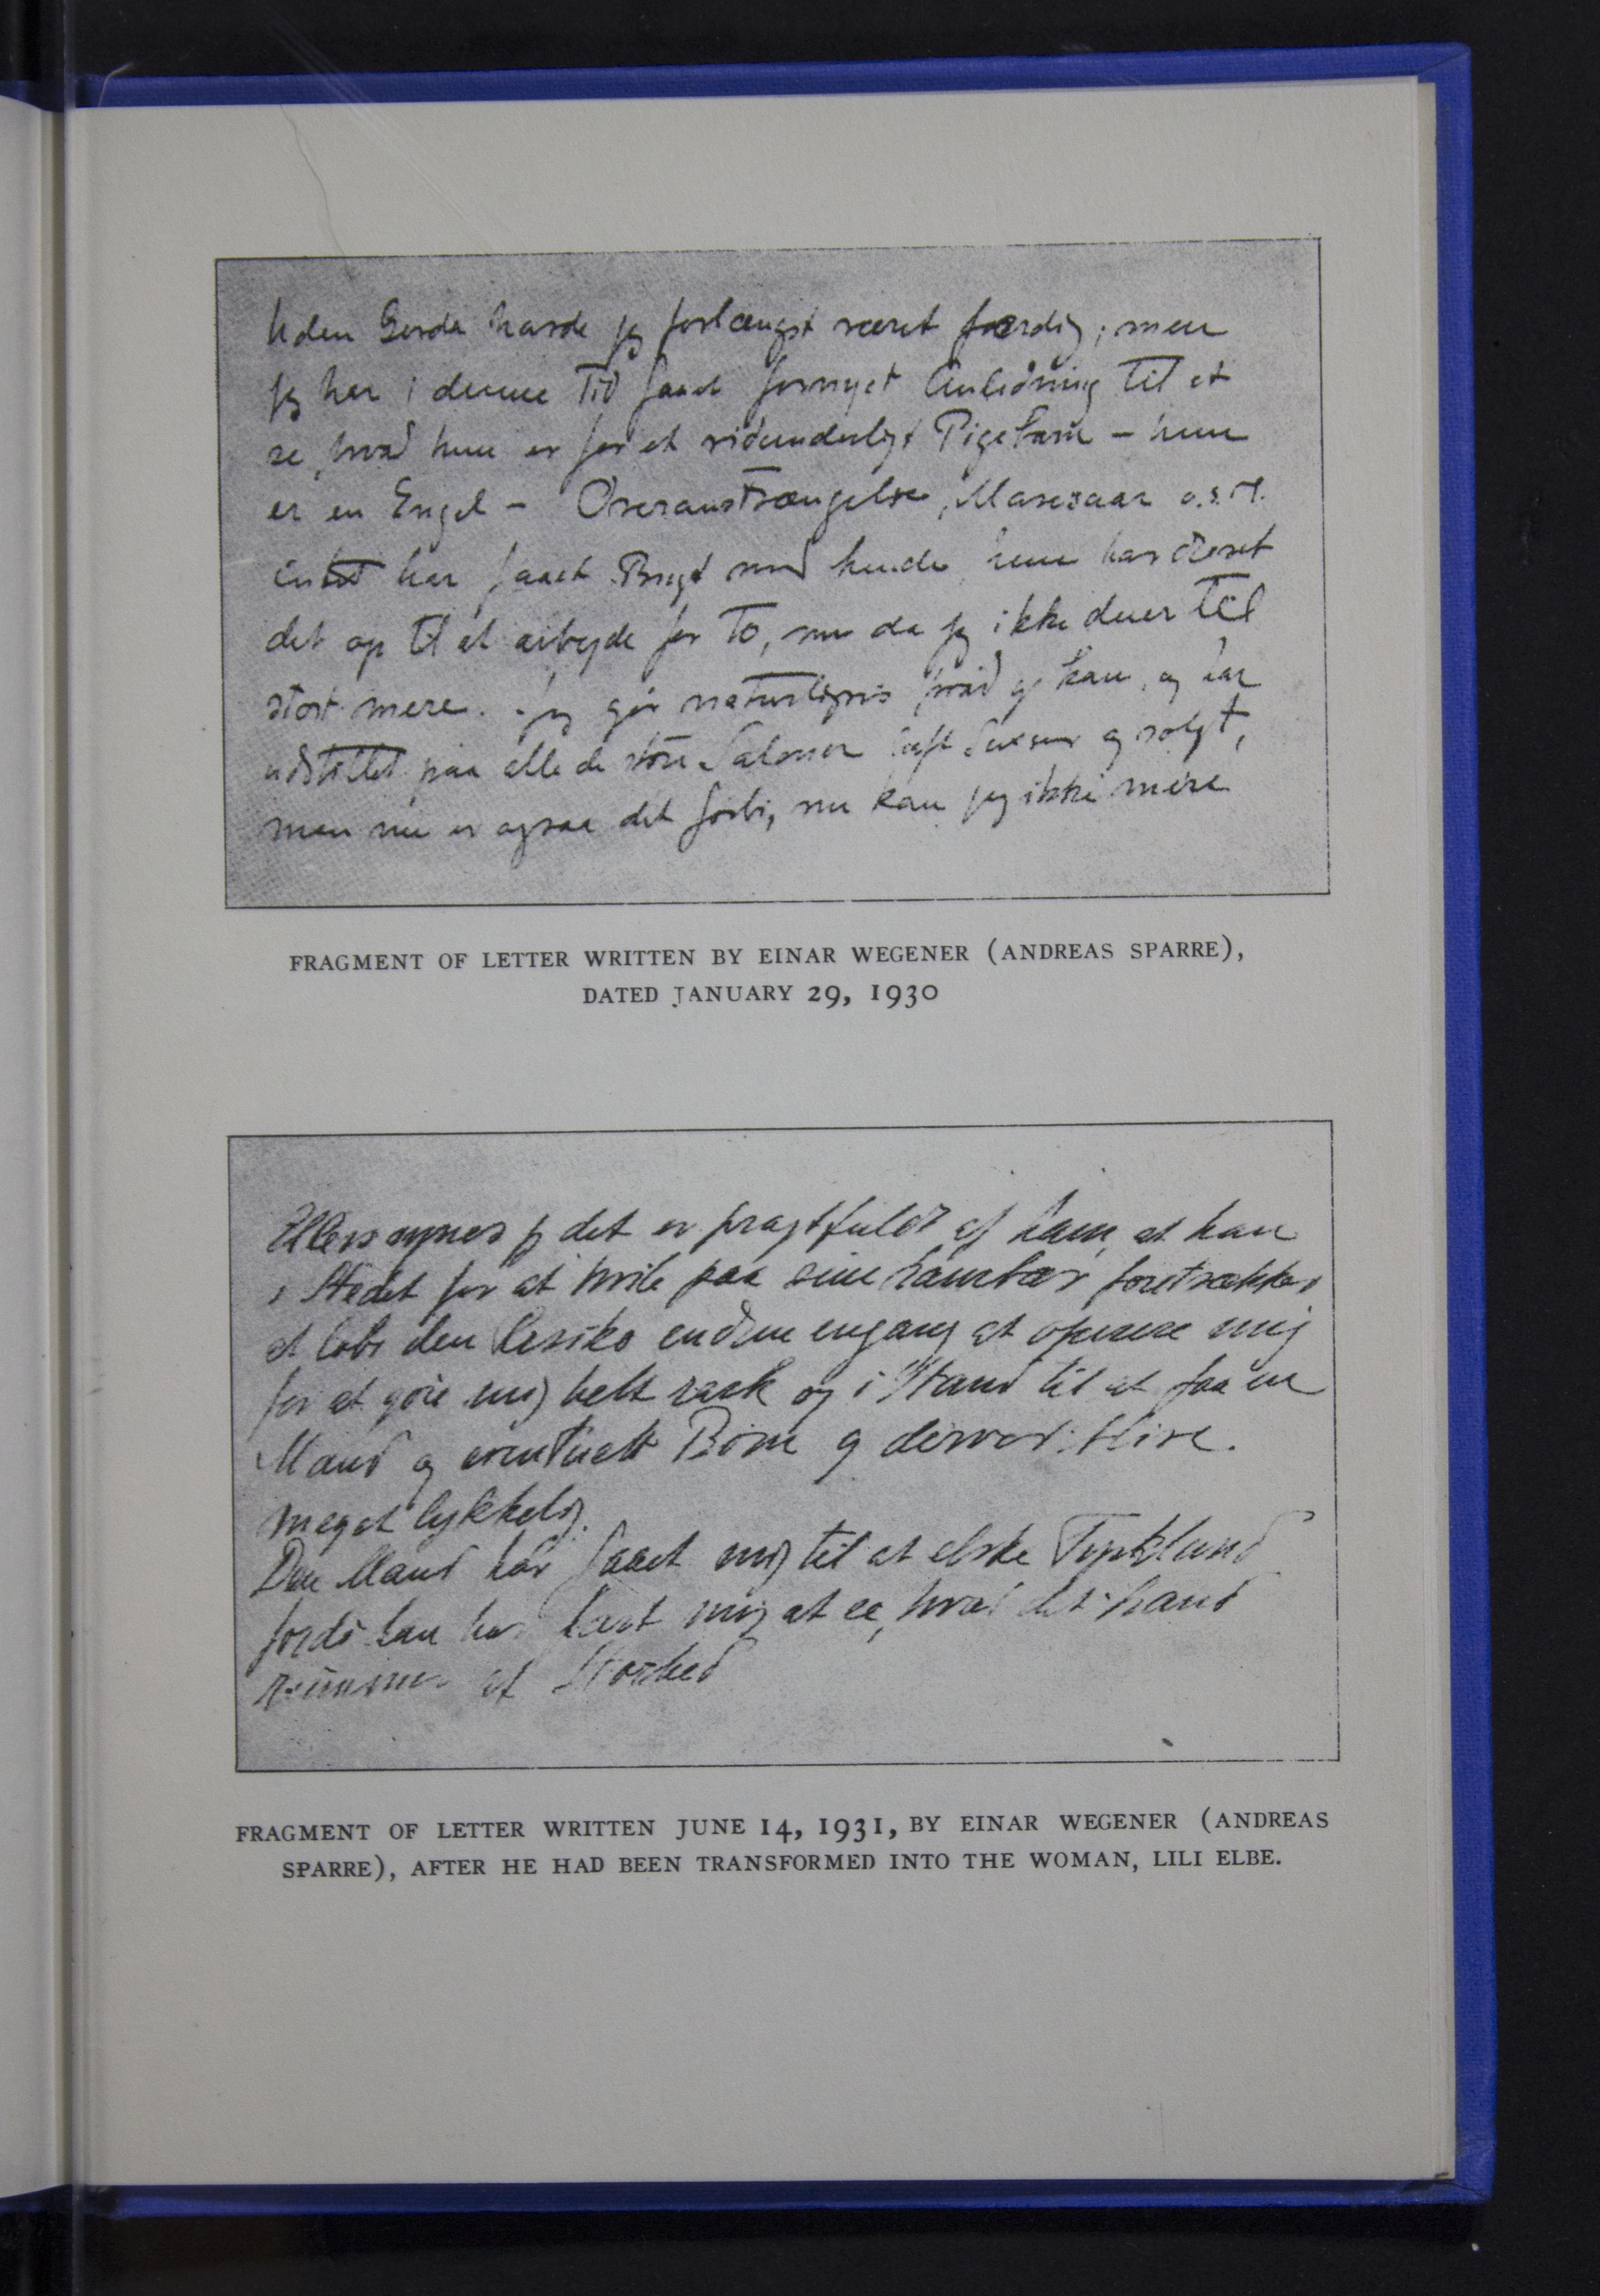 Uden Gerda havde jeg forlængst været færdig; men
jeg har i denne Tid faaet fornyet Anledning til at
se, hvad hun er for et vidunderligt Pigebarn – hun
er en Engel – Overanstrængelse, Maseraar o.s.v.
intet har faaet Bugt med hende, hun har drevet
det op til at arbejde for To, nu da jeg ikke duer til
stort mere. Jeg gør naturligvis hvad jeg kan, og har
udstillet paa alle de store Saloner haft Succes og solgt,
men nu er ogsaa det forbi, nu kan jeg ikke mere
FRAGMENT OF LETTER WRITTEN BY EINAR WEGENER (ANDREAS SPARRE),
DATED JANUARY 29, 1930
Ellers synes jeg det er pragtfuldt af ham, at han
i Stedet for at hvile paa sine Laurbær foretrækker
at løbe den Risiko endnu engang at operere mig
for at gøre mig helt rask og i Stand til at faa en
Mand og eventuelt Børn og derved blive
meget lykkelig.
Den Mand har faaet mig til at elske Tyskland
fordi han har lært mig at se, hvad det Land
rummer af Storhed
FRAGMENT OF LETTER WRITTEN JUNE 14, 1931, BY EINAR WEGENER (ANDREAS
SPARRE), AFTER HE HAD BEEN TRANSFORMED INTO THE WOMAN, LILI ELBE.